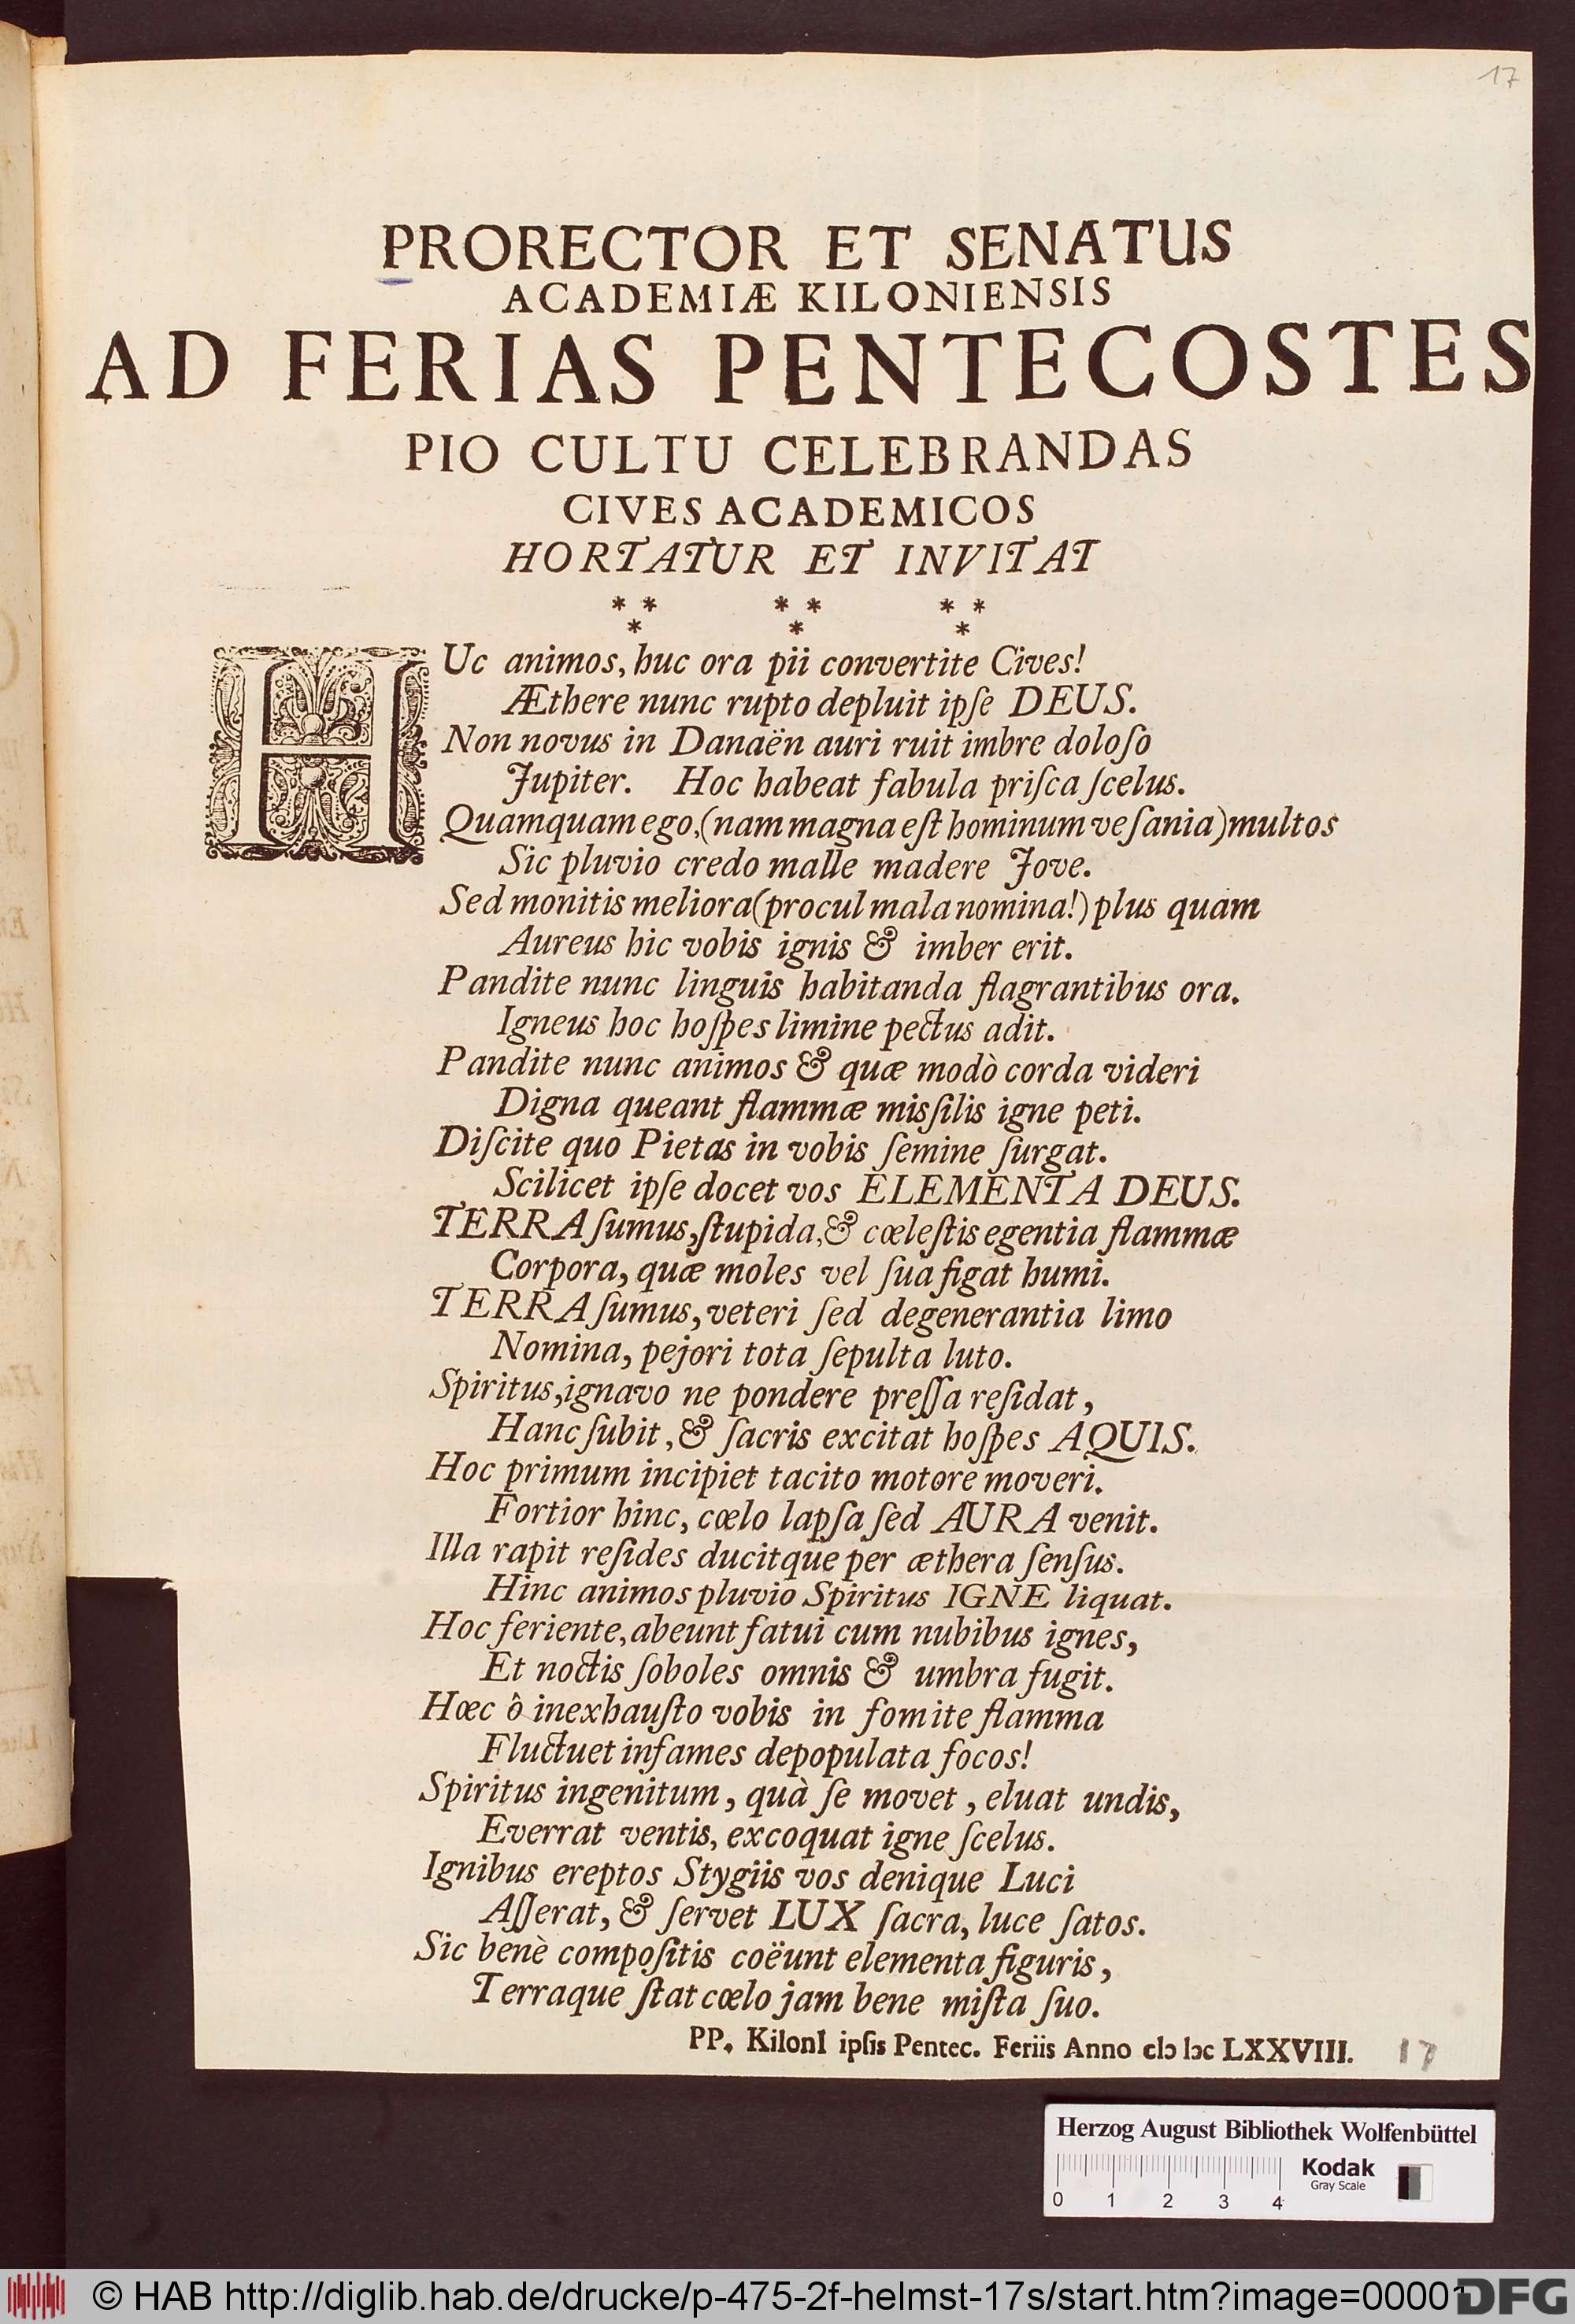 17
PRORECTOR ET SENATUS
ACADEMIÆ KILONIENSIS
AD FERIAS PENTECOSTES
PIO CULTU CELEBRANDAS
CIVES ACADEMICOS
HORTATUR ET INVITAT
* * * * * *
* * *
HUc animos, huc ora pii convertite Cives!
Æthere nunc rupto depluit ipſe DEUS.
Non novus in Danaën auri ruit imbre doloſo
Jupiter. Hoc habeat fabula priſca ſcelus.
Quamquam ego, (nam magna eſt hominum veſania) multos
Sic pluvio credo malle madere Jove.
Sed monitis meliora (procul mala nomina!) plus quam
Aureus hic vobis ignis & imber erit.
Pandite nunc linguis habitanda flagrantibus ora.
Igneus hoc hoſpes limine pectus adit.
Pandite nunc animos & quæ modò corda videri
Digna queant flammæ misſilis igne peti.
Diſcite quo Pietas in vobis ſemine ſurgat.
Scilicet ipſe docet vos ELEMENTA DEUS.
TERRA ſumus, ſtupida, & cœleſtis egentia flammæ
Corpora, quæ moles vel ſua figat humi.
TERRA ſumus, veteri ſed degenerantia limo
Nomina, pejori tota ſepulta luto.
Spiritus, ignavo ne pondere preſſa reſidat,
Hanc ſubit, & ſacris excitat hoſpes AQUIS.
Hoc primum incipiet tacito motore moveri.
Fortior hinc, cœlo lapſa ſed AURA venit.
Illa rapit reſides ducitque per æthera ſenſus.
Hinc animos pluvio Spiritus IGNE liquat.
Hoc feriente, abeunt fatui cum nubibus ignes,
Et noctis ſoboles omnis & umbra fugit.
Hœc ô inexhauſto vobis in fomite flamma
Fluctuet infames depopulata focos!
Spiritus ingenitum, quà ſe movet, eluat undis,
Everrat ventis, excoquat igne ſcelus.
Ignibus ereptos Stygiis vos denique Luci
Aſſerat, & ſervet LUX ſacra, luce ſatos.
Sic benè compoſitis coëunt elementa figuris,
Terraque ſtat cœlo jam bene miſta ſuo.
PP. KilonI ipſis Pentec. Feriis Anno cIɔ Iɔc LXXVIII.
17
Herzog August Bibliothek Wolfenbüttel
Kodak
Gray Scale
0 1 2 3 4
© HAB http://diglib.hab.de/drucke/p-475-2f-helmst-17s/start.htm?image=00001
DFG